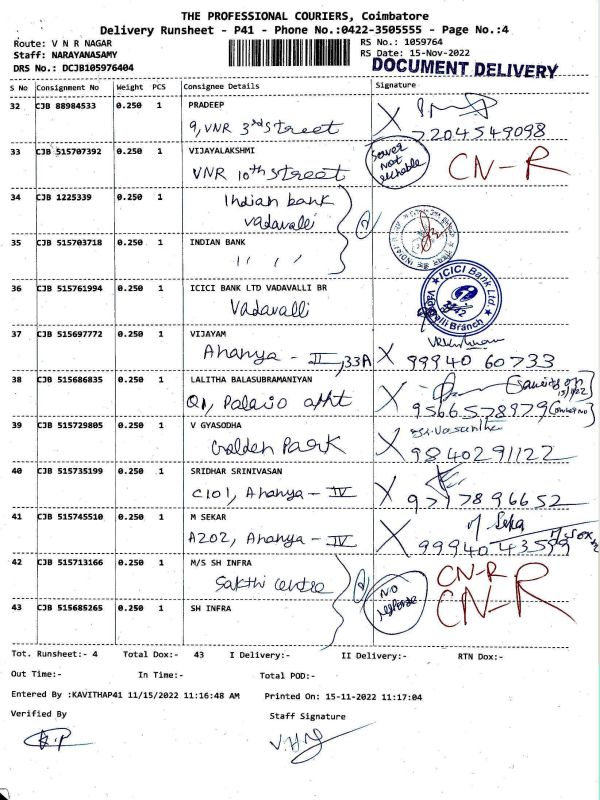 THE PROFESSIONAL COURIERS, Coimbatore
Delivery Runsheet - P41 - Phone No.:0422-3505555 - Page No.:4
Route: V N R NAGAR
RS No.: 1059764
Staff: NARAYANASAMY
RS Date: 15-Nov-2022
DRS No.: DCJB105976404
DOCUMENT DELIVERY
S No Consignment No Weight PCS Consignee Details Signature
32 CJB 88984533 0.250 1 PRADEEP
9, VNR 3rd Street X 7204549098
33 CJB 515707392 0.250 1 VIJAYALAKSHMI
VNR 10th Street CN-R
34 CJB 1225339 0.250 1 Indian bank
Vadavalli
35 CJB 515703718 0.250 1 INDIAN BANK
36 CJB 515761994 0.250 1 ICICI BANK LTD VADAVALLI BR
Vadavalli
ICICI Bank Ltd.
Vadavalli Branch
37 CJB 515697772 0.250 1 VIJAYAM
Ananya - II, 33A X 99940 60733
38 CJB 515686835 0.250 1 LALITHA BALASUBRAMANIYAN
X 9566578979
39 CJB 515729805 0.250 1 V GYASODHA
Golden Park X 9840291122
40 CJB 515735199 0.250 1 SRIDHAR SRINIVASAN
C101, Ananya - IV X
41 CJB 515745510 0.250 1 M SEKAR
A202, Ananya - IV X 99940 43599
42 CJB 515713166 0.250 1 M/S SH INFRA
Sakthi Centre
NO response
CN-R
CN-R
43 CJB 515685265 0.250 1 SH INFRA
Tot. Runsheet:- 4 Total Dox:- 43 I Delivery:- II Delivery:- RTN Dox:-
Out Time:- In Time:- Total POD:-
Entered By :KAVITHAP41 11/15/2022 11:16:48 AM Printed On: 15-11-2022 11:17:04
Verified By Staff Signature